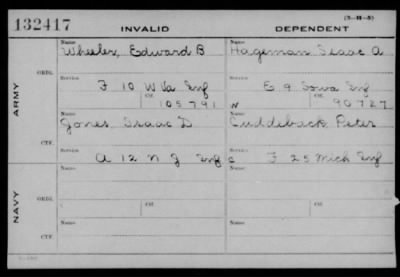 132417
INVALID
(3-11-5)
DEPENDENT
ARMY
ORIG.
Name
Wheeler, Edward B
Name
Hageman Isaac A
Service
F 10 W Va Inf
Service
E 9 Iowa Inf
Ctf.
105791
N
Ctf.
90727
CTF.
Name
Jones, Isaac D
Name
Cuddeback, Peter
Service
A 12 N J Inf
C
Service
F 25 Mich Inf
NAVY
ORIG.
Name
Name
Service
Ctf.
Service
Ctf.
CTF.
Name
Name